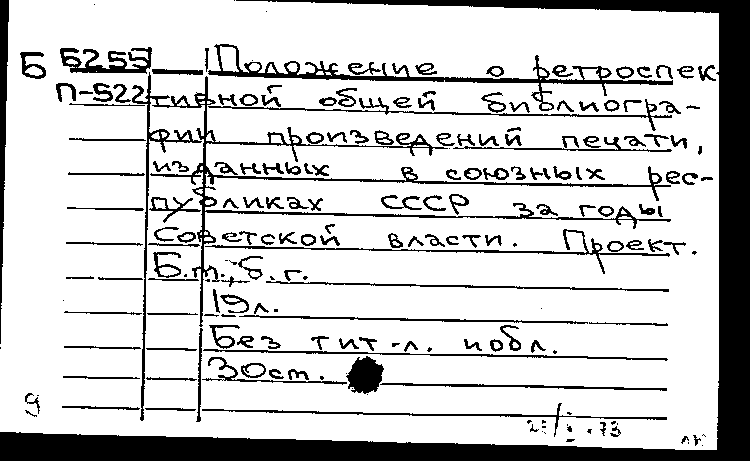 Б 6255 Положение о ретроспек-
П-522 тивной общей библиогра-
фии произведений печати,
изданных в союзных рес-
публиках СССР за годы
Советской власти. Проект.
Б.м., б.г.
19л.
Без тит-л. иобл.
30ст.
9